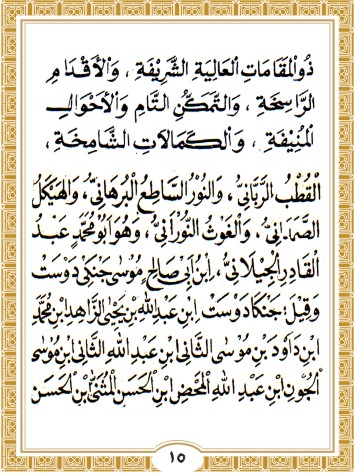 ذُو الْمَقَامَاتِ الْعَالِيَةِ الشَّرِيْفَةِ ، وَالْأَقْدَامِ
الرَّاسِخَةِ ، وَالتَّمَكُّنِ التَّامِ وَالْأَحْوَالِ
الْمُنِيْفَةِ ، وَالْكَمَالَاتِ الشَّامِخَةِ ،
الْقُطْبُ الرَّبَّانِيُّ ، وَالنُّوْرُ السَّاطِعُ الْبُرْهَانِيُّ ، وَالْهَيْكَلُ
الصَّمَدَانِيُّ ، وَالْغَوْثُ النُّوْرَانِيُّ ، وَهُوَ أَبُوْ مُحَمَّدٍ عَبْدُ
الْقَادِرِ الْجِيْلَانِيُّ ، ابْنِ أَبِيْ صَالِحٍ مُوْسَى جَنْكِيْ دَوْسَتْ
وَقِيْلَ : جَنْكَا دَوْسَتْ ابْنِ عَبْدِ اللهِ بْنِ يَحْيَى الزَّاهِدِ ابْنِ مُحَمَّدِ
ابْنِ دَاوُدَ بْنِ مُوْسَى الثَّانِيْ ابْنِ عَبْدِ اللهِ الثَّانِيْ ابْنِ مُوْسَى
الْجُوْنِ ابْنِ عَبْدِ اللهِ الْمَحْضِ ابْنِ الْحَسَنِ الْمُثَنَّى ابْنِ الْحَسَنِ
١٥